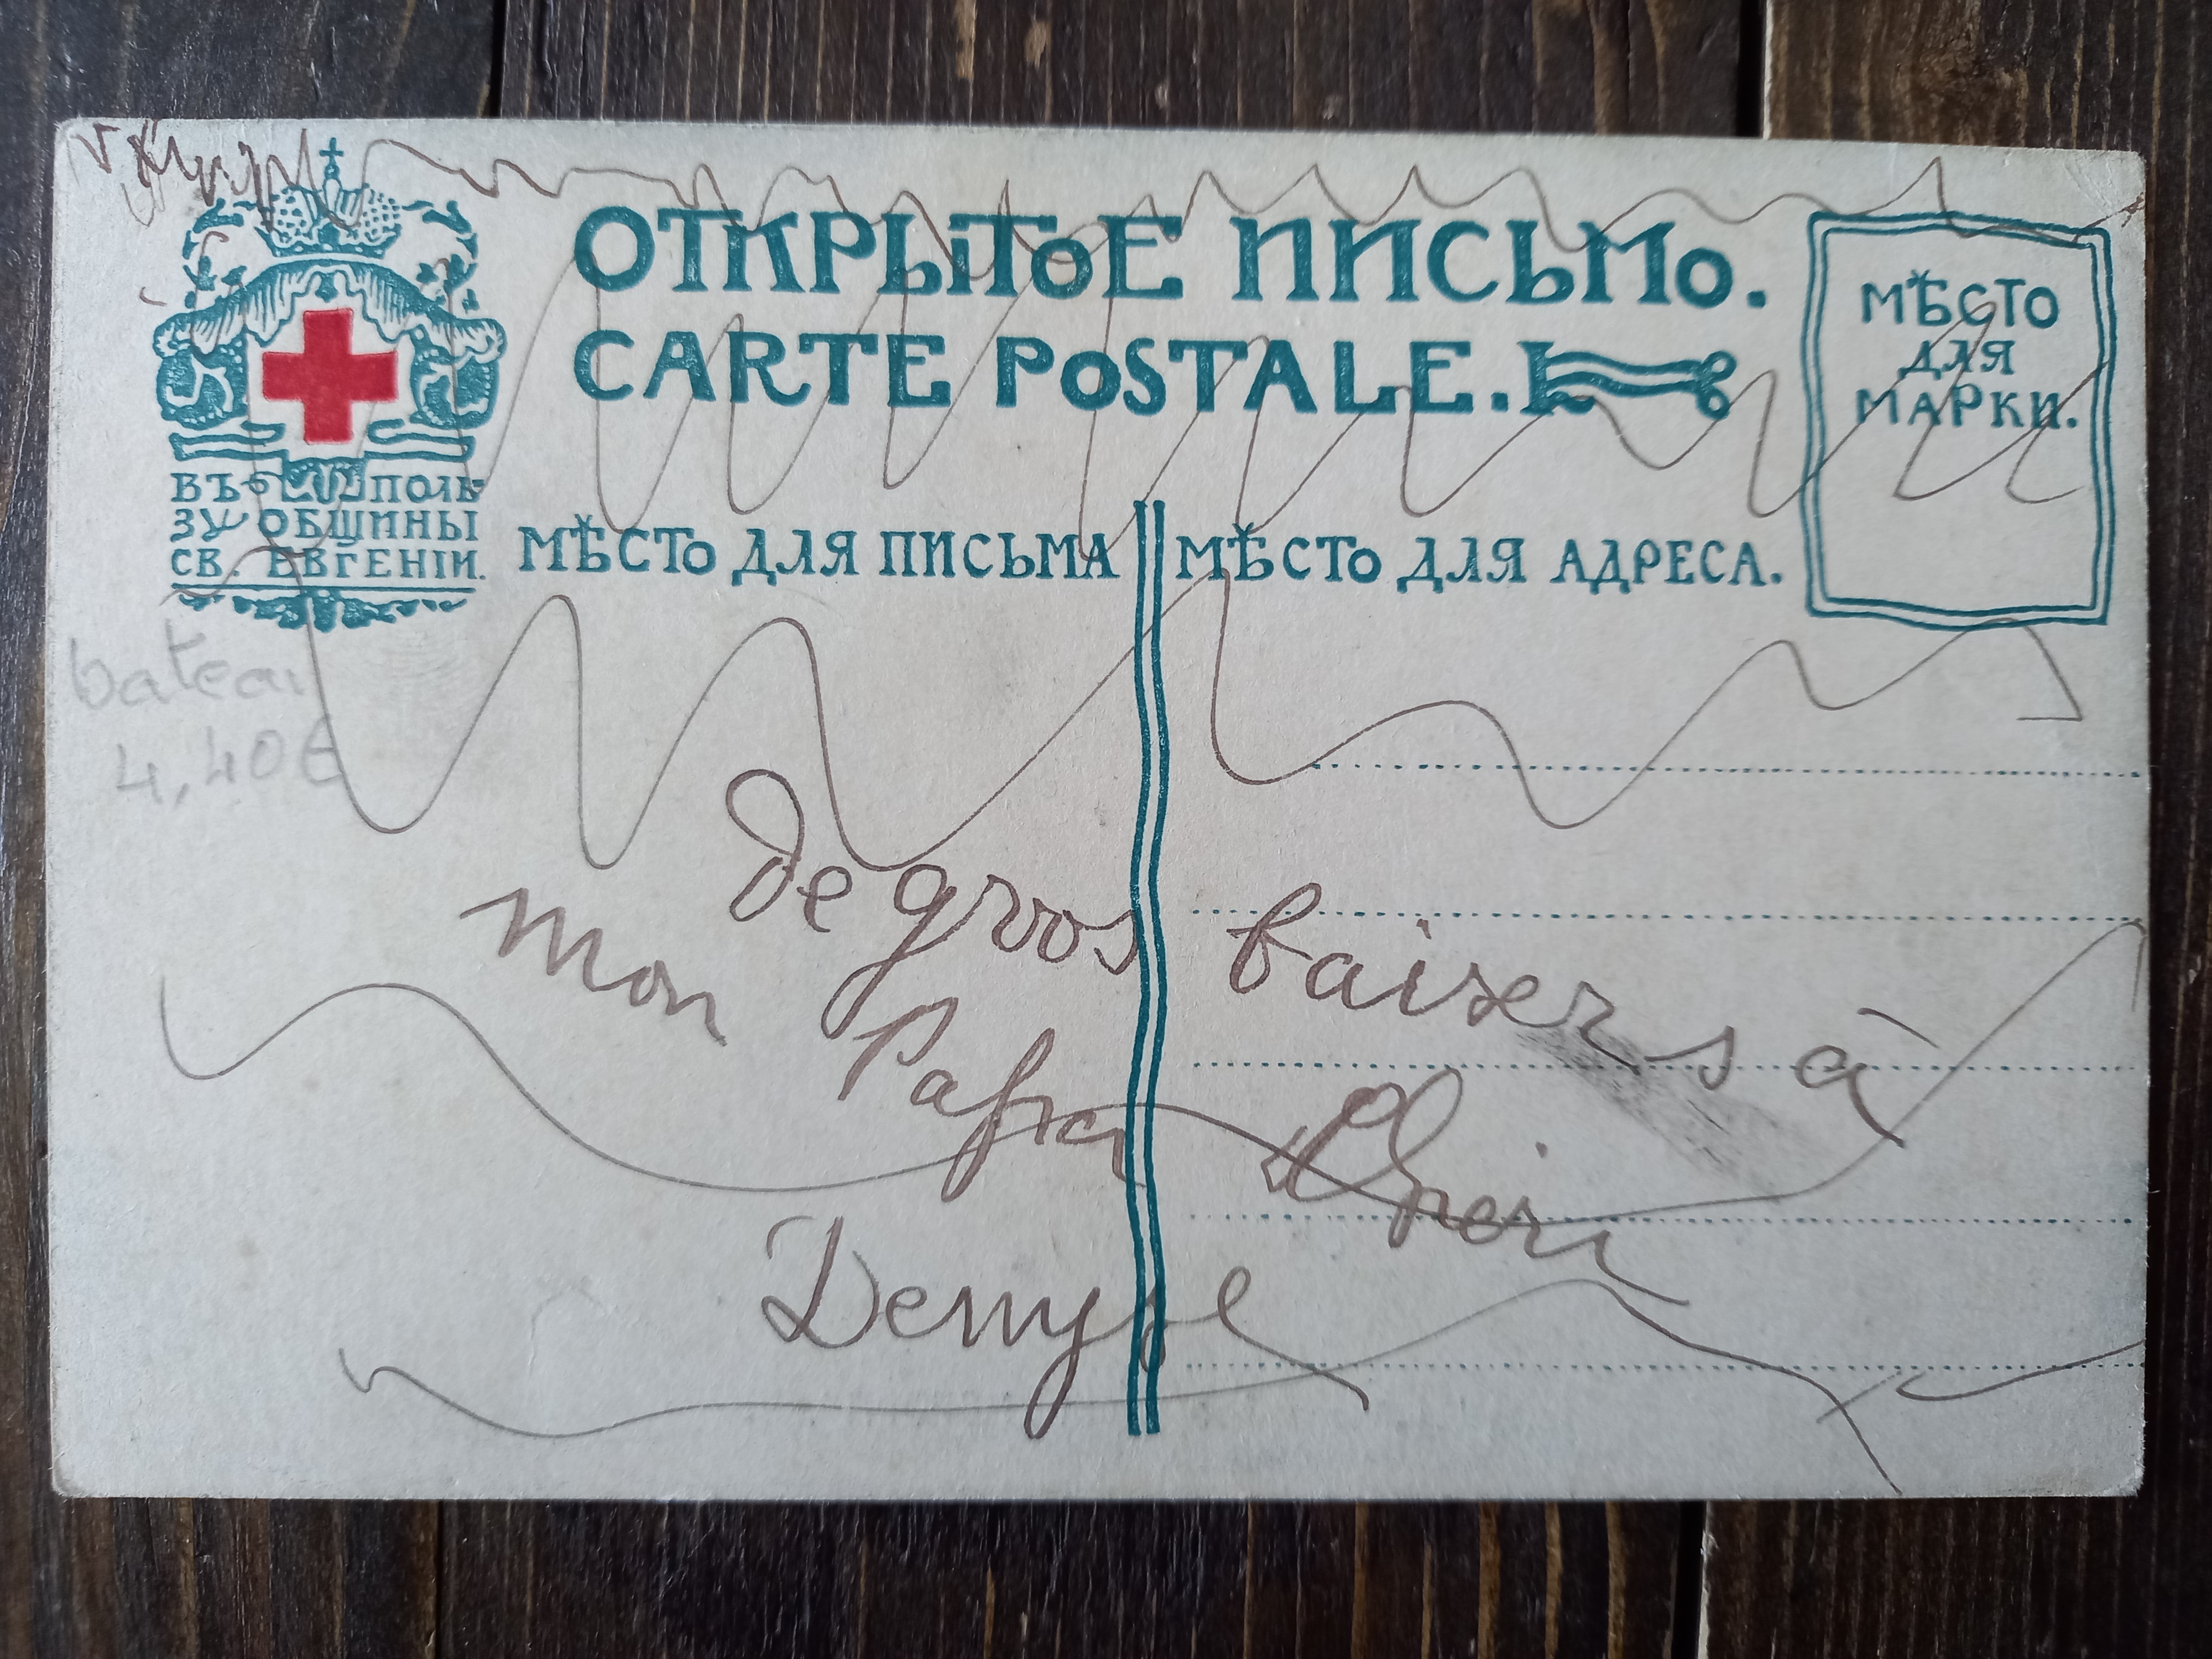 ОТКРЫТОЕ ПИСЬМО.
CARTE POSTALE.
МѢСТО
ДЛЯ
МАРКИ.
ВЪ ПОЛЬ-
ЗУ ОБЩИНЫ
СВ. ЕВГЕНІИ.
МѢСТО ДЛЯ ПИСЬМА
МѢСТО ДЛЯ АДРЕСА.
bateau
4,40€
de gros baisers à
mon Papa Chéri
Denyse